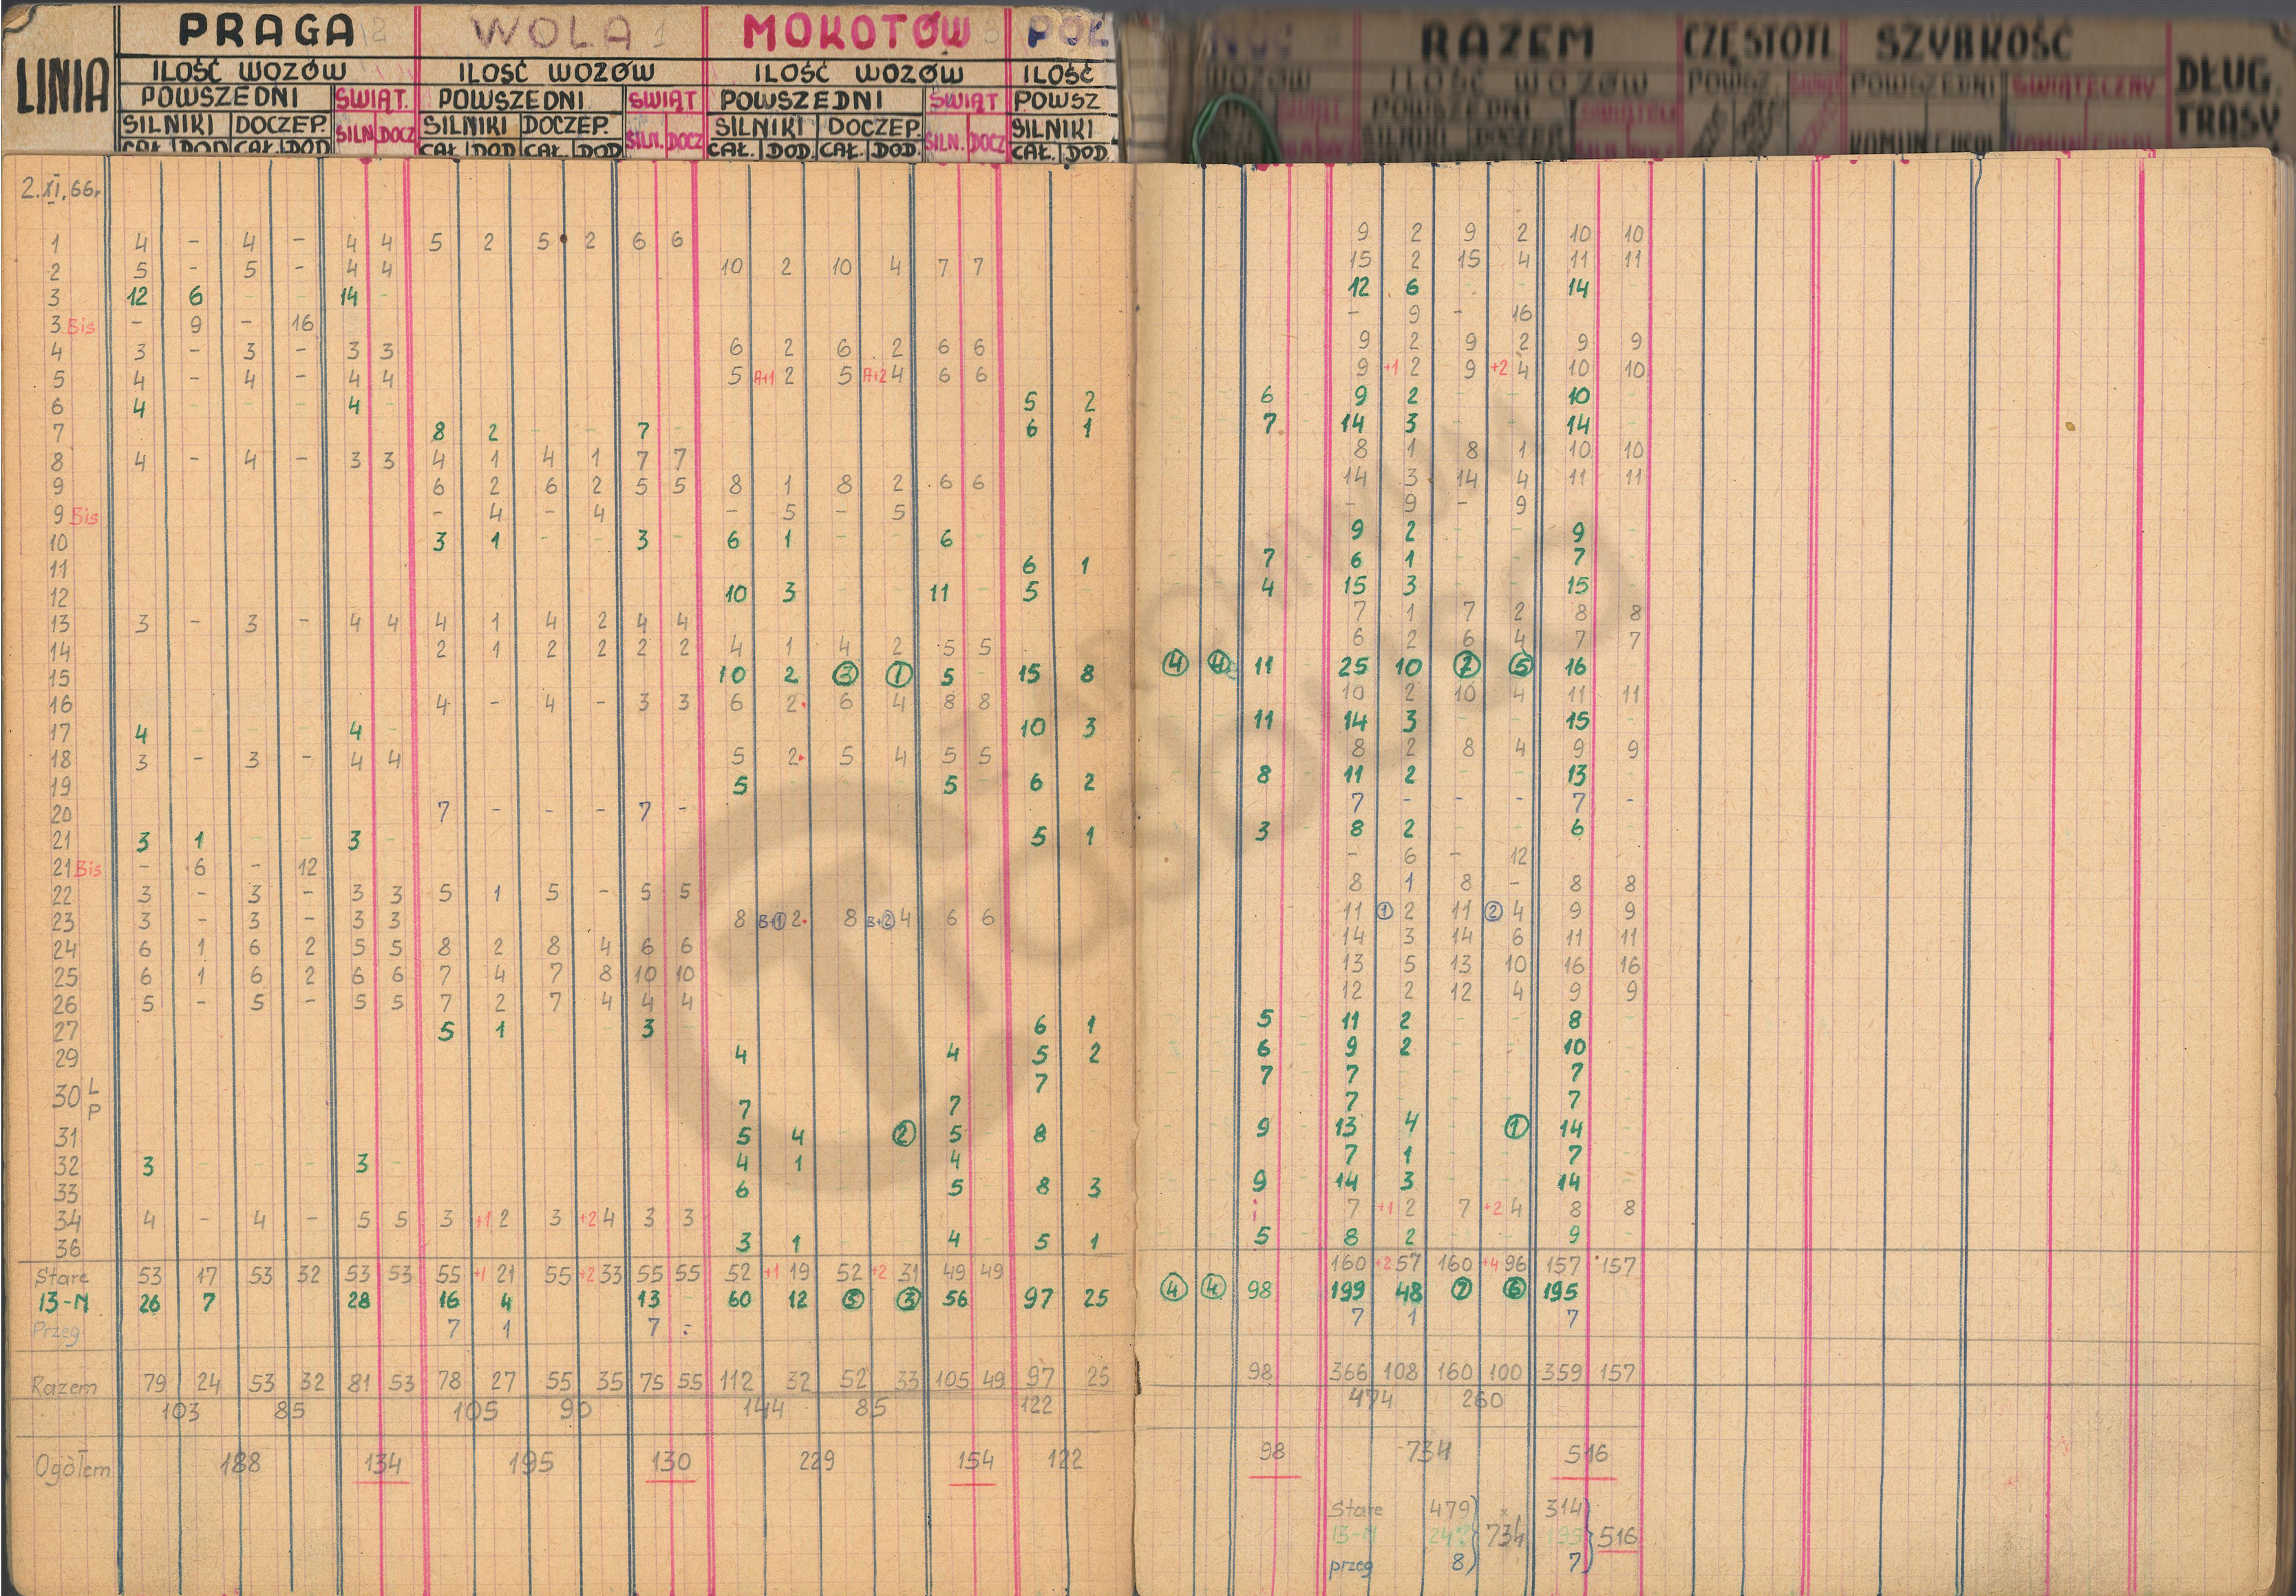 LINIA PRAGA 2 WOLA 1 MOKOTÓW 3 PÓŁ NOC RAZEM CZĘSTOTL SZYBKOŚĆ DŁUG. TRASY
ILOŚĆ WOZÓW ILOŚĆ WOZÓW ILOŚĆ WOZÓW ILOŚĆ WOZÓW ILOŚĆ WOZÓW
POWSZEDNI ŚWIĄT. POWSZEDNI ŚWIĄT POWSZEDNI ŚWIĄT POWSZ POWSZEDNI POWSZ. POWSZEDNI ŚWIĄTECZNY
SILNIKI DOCZEP. SILN DOCZ SILNIKI DOCZEP. SILN. DOCZ SILNIKI DOCZEP. SILN. DOCZ SILNIKI
CAŁ. DOD. CAŁ. DOD. CAŁ. DOD. CAŁ. DOD. CAŁ. DOD. CAŁ. DOD. CAŁ. DOD.
2.XI.66r.
1 4 - 4 - 4 4 5 2 5 2 6 6 9 2 9 2 10 10
2 5 - 5 - 4 4 10 2 10 4 7 7 15 2 15 4 11 11
3 12 6 - - 14 - 12 6 - - 14 -
3 Bis - 9 - 16 - 9 - 16
4 3 - 3 - 3 3 6 2 6 2 6 6 9 2 9 2 9 9
5 4 - 4 - 4 4 5 A+1 2 5 A+2 4 6 6 9 +1 2 9 +2 4 10 10
6 4 - - - 4 - 5 2 - - 6 - 9 2 - - 10 -
7 8 2 - - 7 - 6 1 - - 7 - 14 3 - - 14 -
8 4 - 4 - 3 3 4 1 4 1 7 7 8 1 8 1 10 10
9 6 2 6 2 5 5 8 1 8 2 6 6 14 3 14 4 11 11
9 Bis - 4 - 4 - 5 - 5 - 9 - 9
10 3 1 - - 3 - 6 1 - - 6 - 9 2 - - 9 -
11 6 1 - - 7 - 6 1 - - 7 -
12 10 3 - - 11 - 5 - - - 4 - 15 3 - - 15 -
13 3 - 3 - 4 4 4 1 4 2 4 4 7 1 7 2 8 8
14 2 1 2 2 2 2 4 1 4 2 5 5 6 2 6 4 7 7
15 10 2 3 1 5 - 15 8 4 4 11 - 25 10 7 5 16 -
16 4 - 4 - 3 3 6 2 6 4 8 8 10 2 10 4 11 11
17 4 - - - 4 - 10 3 - - 11 - 14 3 - - 15 -
18 3 - 3 - 4 4 5 2 5 4 5 5 8 2 8 4 9 9
19 5 - - - 5 - 6 2 - - 8 - 11 2 - - 13 -
20 7 - - - 7 - 7 - - - 7 -
21 3 1 - - 3 - 5 1 - - 3 - 8 2 - - 6 -
21 Bis - 6 - 12 - 6 - 12
22 3 - 3 - 3 3 5 1 5 - 5 5 8 1 8 - 8 8
23 3 - 3 - 3 3 8 B+1 2 8 B+2 4 6 6 11 1 2 11 2 4 9 9
24 6 1 6 2 5 5 8 2 8 4 6 6 14 3 14 6 11 11
25 6 1 6 2 6 6 7 4 7 8 10 10 13 5 13 10 16 16
26 5 - 5 - 5 5 7 2 7 4 4 4 12 2 12 4 9 9
27 5 1 - - 3 - 6 1 - - 5 - 11 2 - - 8 -
29 4 - - - 4 - 5 2 - - 6 - 9 2 - - 10 -
30 L 7 - - - 7 - 7 - - - 7 -
P 7 - - - 7 - 7 - - - 7 -
31 5 4 2 5 - 8 - - - 9 - 13 4 1 14 -
32 3 - - - 3 - 4 1 4 - 7 1 - - 7 -
33 6 5 - 8 3 - - 9 - 14 3 - - 14 -
34 4 - 4 - 5 5 3 +1 2 3 +2 4 3 3 7 +1 2 7 +2 4 8 8
36 3 1 - - 4 - 5 1 - - 5 - 8 2 - - 9 -
Stare 53 17 53 32 53 53 55 +1 21 55 +2 33 55 55 52 +1 19 52 +2 31 49 49 160 +2 57 160 +4 96 157 157
13-N 26 7 28 16 4 13 60 12 3 3 56 97 25 4 4 98 199 48 7 6 195
Przeg 7 1 7 - 7 1 7
Razem 79 24 53 32 81 53 78 27 55 35 75 55 112 32 52 33 105 49 97 25 98 366 108 160 100 359 157
103 85 105 90 144 85 122 474 260
Ogółem 188 134 195 130 229 154 122 98 734 516
Stare 479 314
13-N 247 734 195 516
przeg 8 7